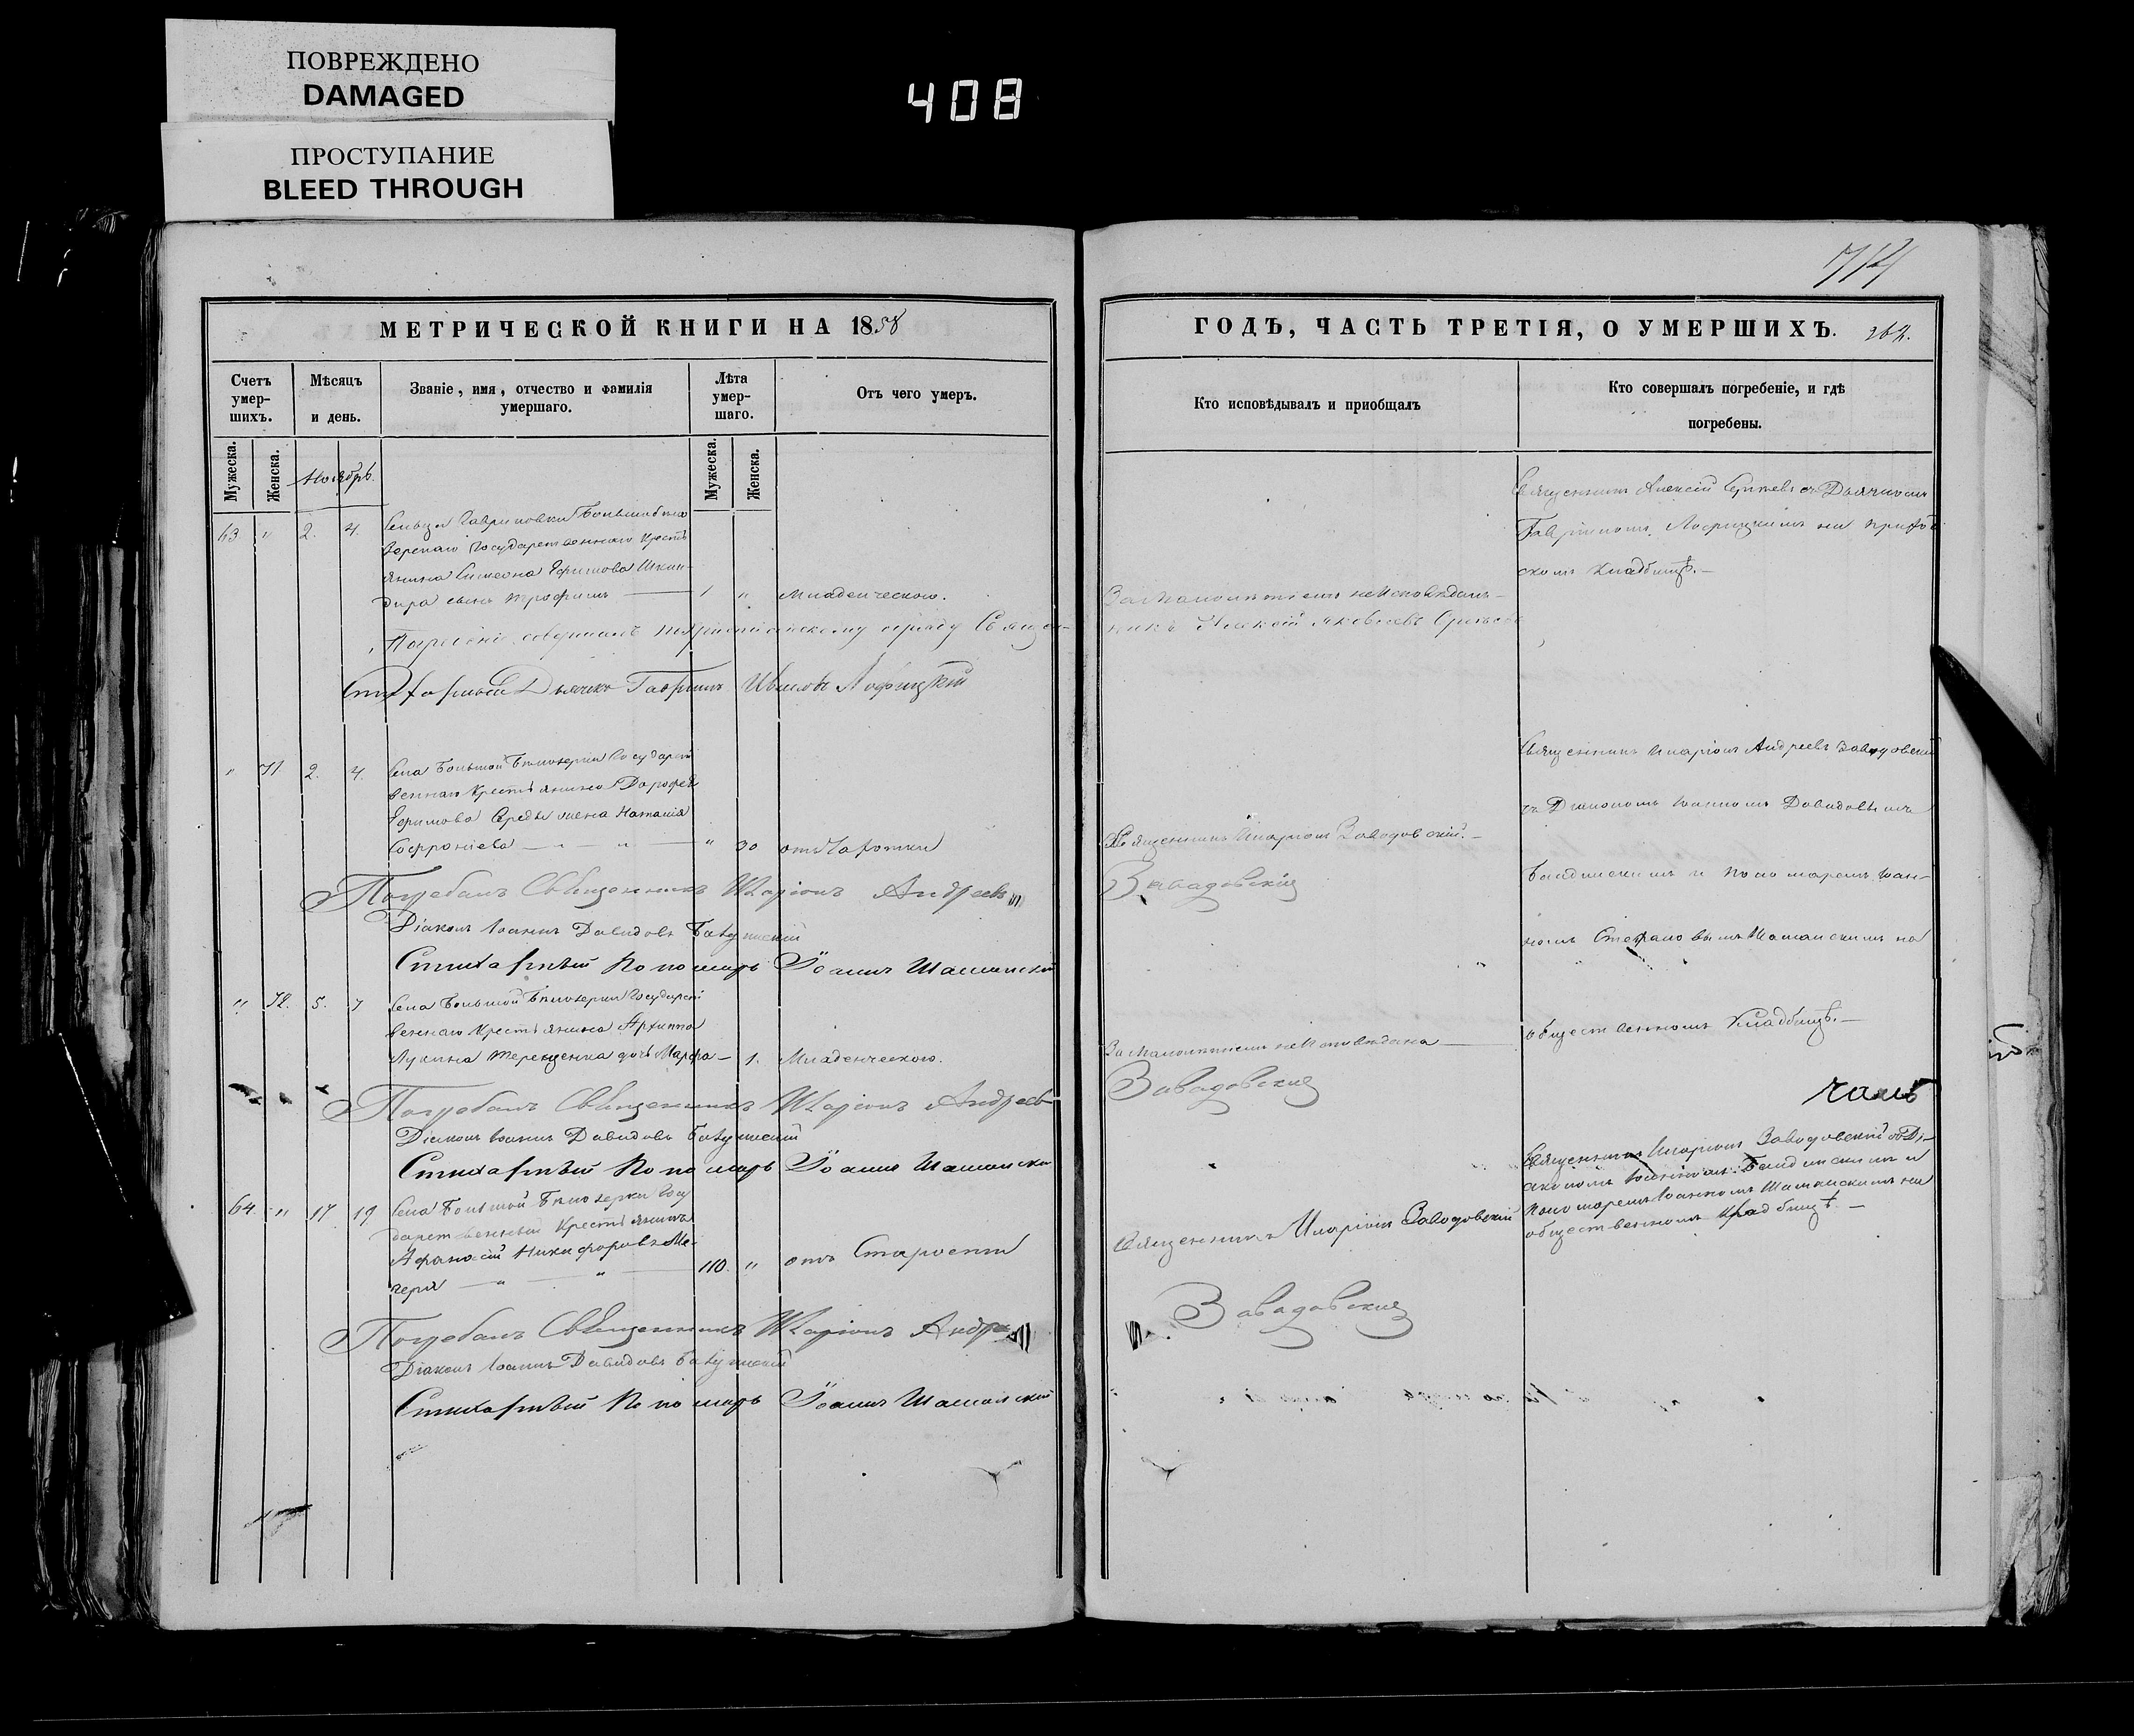 ПОВРЕЖДЕНО
DAMAGED
ПРОСТУПАНИЕ
BLEED THROUGH
408
МЕТРИЧЕСКОЙ КНИГИ НА 1858
Счетъ умер-шихъ.
Мѣсяцъ и день.
Званіе, имя, отчество и фамилія умершаго.
Лѣта умер-шаго.
Отъ чего умеръ.
Мужеска.
Женска.
Ноябрь.
Мужеска.
Женска.
63 " 2. 4.
Сельца Гавриловки Большебѣло
зерскаго Государственнаго Кресть
янина Симеона Ефимова Шкан-
дыра сынъ Трофимъ — 1 " Младенческою.
Погребеніе совершалъ по христіанскому обряду Священ-
Стихарный Дьячекъ Гавріилъ Ивановъ Лофицкій
" 71. 2. 4.
Села Большой Бѣлозерки Государст
веннаго Крестьянина Дорофея
Ефимова Середы жена Наталія
Софроніева — " — " 30 отъ Чахотки
Погребалъ Священникъ Иларіонъ Андреевъ
Діаконъ Іоаннъ Давидовъ
Стихарный Пономарь Іоаннъ Шаманскій
" 72. 5. 7
Села Большой Бѣлозерки Государст
веннаго Крестьянина Архиппа
Лукина Терещенка дочь Марфа — 1. Младенческою.
Погребалъ Священникъ Иларіонъ Андреевъ
Діаконъ Іоаннъ Давидовъ
Стихарный Пономарь Іоаннъ Шамански
64. " 17 19
Села Большой Бѣлозерки Госу
дарственный Крестьянинъ
Афанасій Никифоровъ Ме-
черя — " — " — 110. " отъ Старости
Погребалъ Священникъ Иларіонъ Андре
Діаконъ Іоаннъ Давидовъ
Стихарный Пономарь Іоаннъ Шаманскій
ГОДЪ, ЧАСТЬ ТРЕТІЯ, О УМЕРШИХЪ. 262.
Кто исповѣдывалъ и пріобщалъ
Кто совершалъ погребеніе, и гдѣ погребены.
Священникъ Алексій съ Дьячкомъ
Гавріиломъ Лофицкимъ на приход
скомъ Кладбищѣ.—
За малолѣтіемъ неисповѣданъ—
никъ Алексій Яковлевъ
Священникъ Иларіонъ Андреевъ Завадовскій
съ Діакономъ Іоанномъ Давидовымъ
Священникъ Иларіонъ Завадовскій.—
Завадовскій
и Пономаремъ Іоан-
номъ Стефановымъ Шаманскимъ на
общественномъ Кладбищѣ.—
За малолѣтіемъ неисповѣдана —
Завадовскій
Священникъ Иларіонъ Завадовскій съ Ді-
акономъ Іоанномъ и
Пономаремъ Іоанномъ Шаманскимъ на
общественномъ Кладбищѣ.—
Священникъ Иларіонъ Завадовскій
Завадовскій